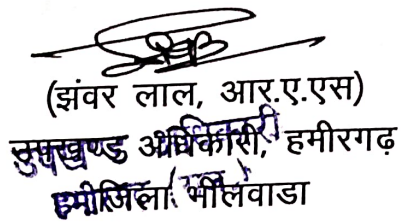 (झंवर लाल, आर.ए.एस)
उपखण्ड अधिकारी, हमीरगढ़
जिला भीलवाडा